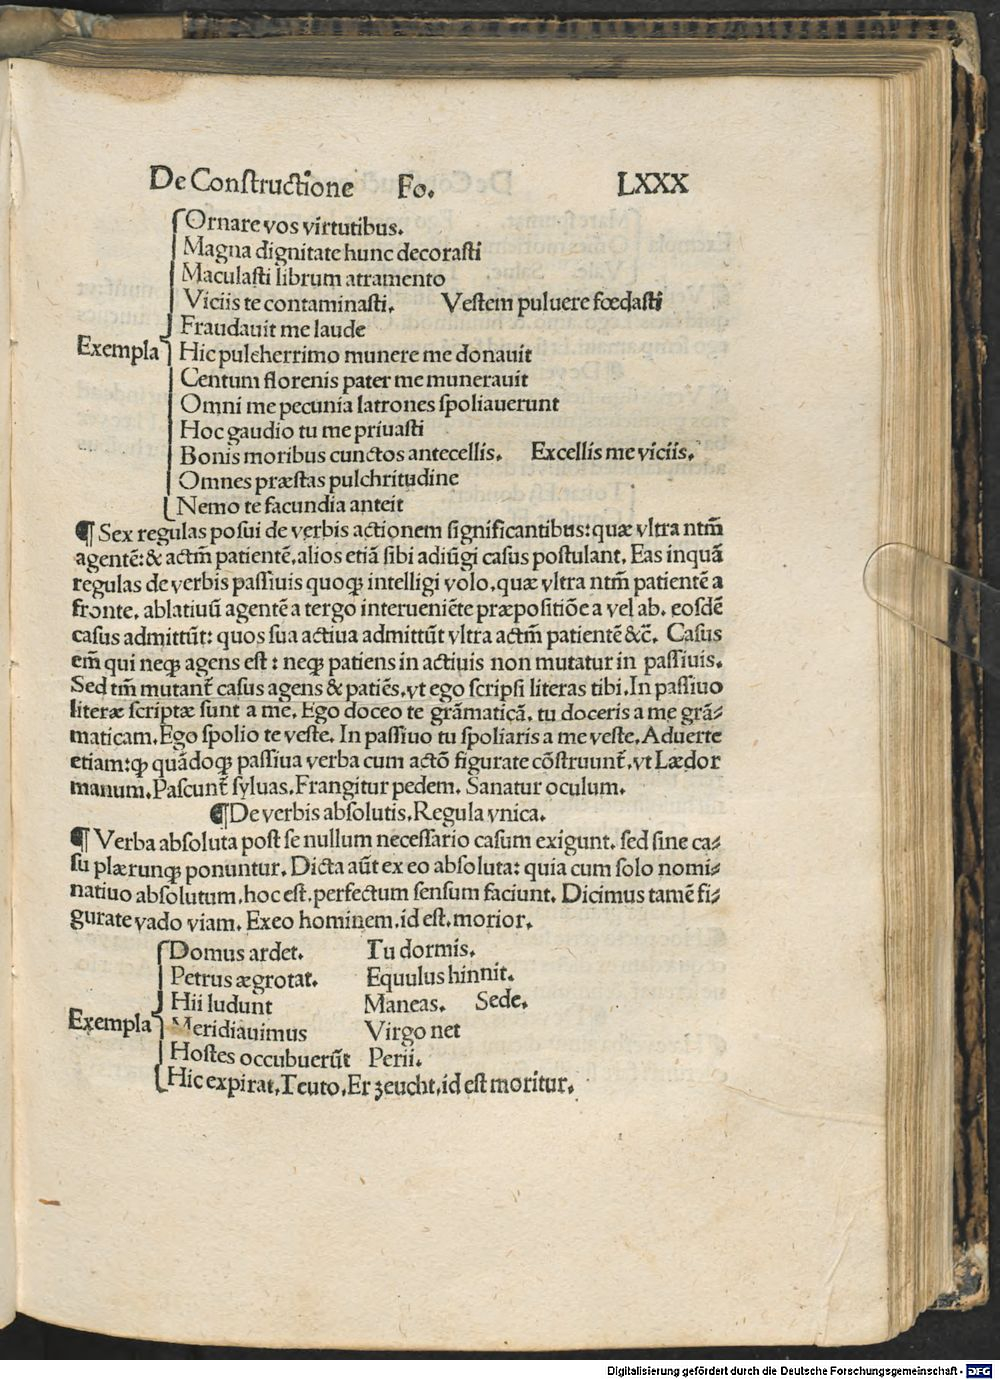 De Constructione Fo. LXXX
Ornare vos virtutibus.
Magna dignitate hunc decorasti
Maculasti librum atramento
Viciis te contaminasti. Vestem puluere fœdasti
Fraudauit me laude
Exempla Hic pulcherrimo munere me donauit
Centum florenis pater me munerauit
Omni me pecunia latrones spoliauerunt
Hoc gaudio tu me priuasti
Bonis moribus cunctos antecellis. Excellis me viciis.
Omnes præstas pulchritudine
Nemo te facundia anteit
¶ Sex regulas posui de verbis actionem significantibus: quæ vltra ntm̃
agentẽ: & actm̃ patientẽ, alios etiã sibi adiũgi casus postulant. Eas inquã
regulas de verbis passiuis quoqꝫ intelligi volo, quæ vltra ntm̃ patientẽ a
fronte. ablatiuũ agentẽ a tergo interueniẽte præpositiõe a vel ab. eosdẽ
casus admittũt: quos sua actiua admittũt vltra actm̃ patientẽ &c̃. Casus
em̃ qui neqꝫ agens est: neqꝫ patiens in actiuis non mutatur in passiuis.
Sed tm̃ mutant̃ casus agens & patiẽs, vt ego scripsi literas tibi. In passiuo
literæ scriptæ sunt a me. Ego doceo te grãmaticã. tu doceris a me grã⸗
maticam. Ego spolio te veste. In passiuo tu spoliaris a me veste. Aduerte
etiam: ꝙ quãdoqꝫ passiua verba cum actõ figurate cõstruunt̃. vt Lædor
manum. Pascunt̃ syluas. Frangitur pedem. Sanatur oculum.
¶De verbis absolutis. Regula vnica.
¶ Verba absoluta post se nullum necessario casum exigunt. sed sine ca⸗
su plærunqꝫ ponuntur. Dicta aũt ex eo absoluta: quia cum solo nomi⸗
natiuo absolutum, hoc est. perfectum sensum faciunt. Dicimus tamẽ fi⸗
gurate vado viam. Exeo hominem. id est. morior.
Domus ardet. Tu dormis.
Petrus ægrotat. Equulus hinnit.
Hii ludunt Maneas. Sede.
Exempla Meridiauimus Virgo net
Hostes occubuerũt Perii.
Hic expirat. Teuto. Er zeucht. id est moritur.
Digitalisierung gefördert durch die Deutsche Forschungsgemeinschaft - DFG